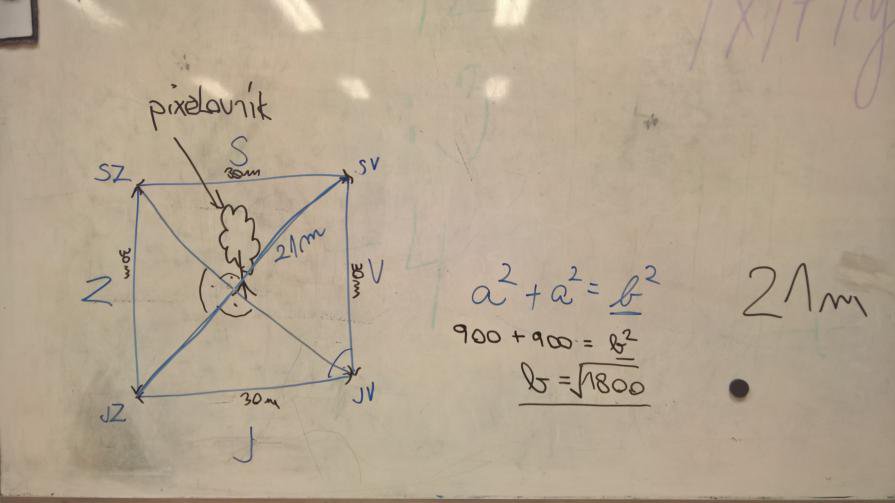 pixelovník
S
30m
SZ
SV
21m
30m
Z
30m
V
JZ
30m
JV
J
a² + a² = b²
900 + 900 = b²
b = √1800
21m